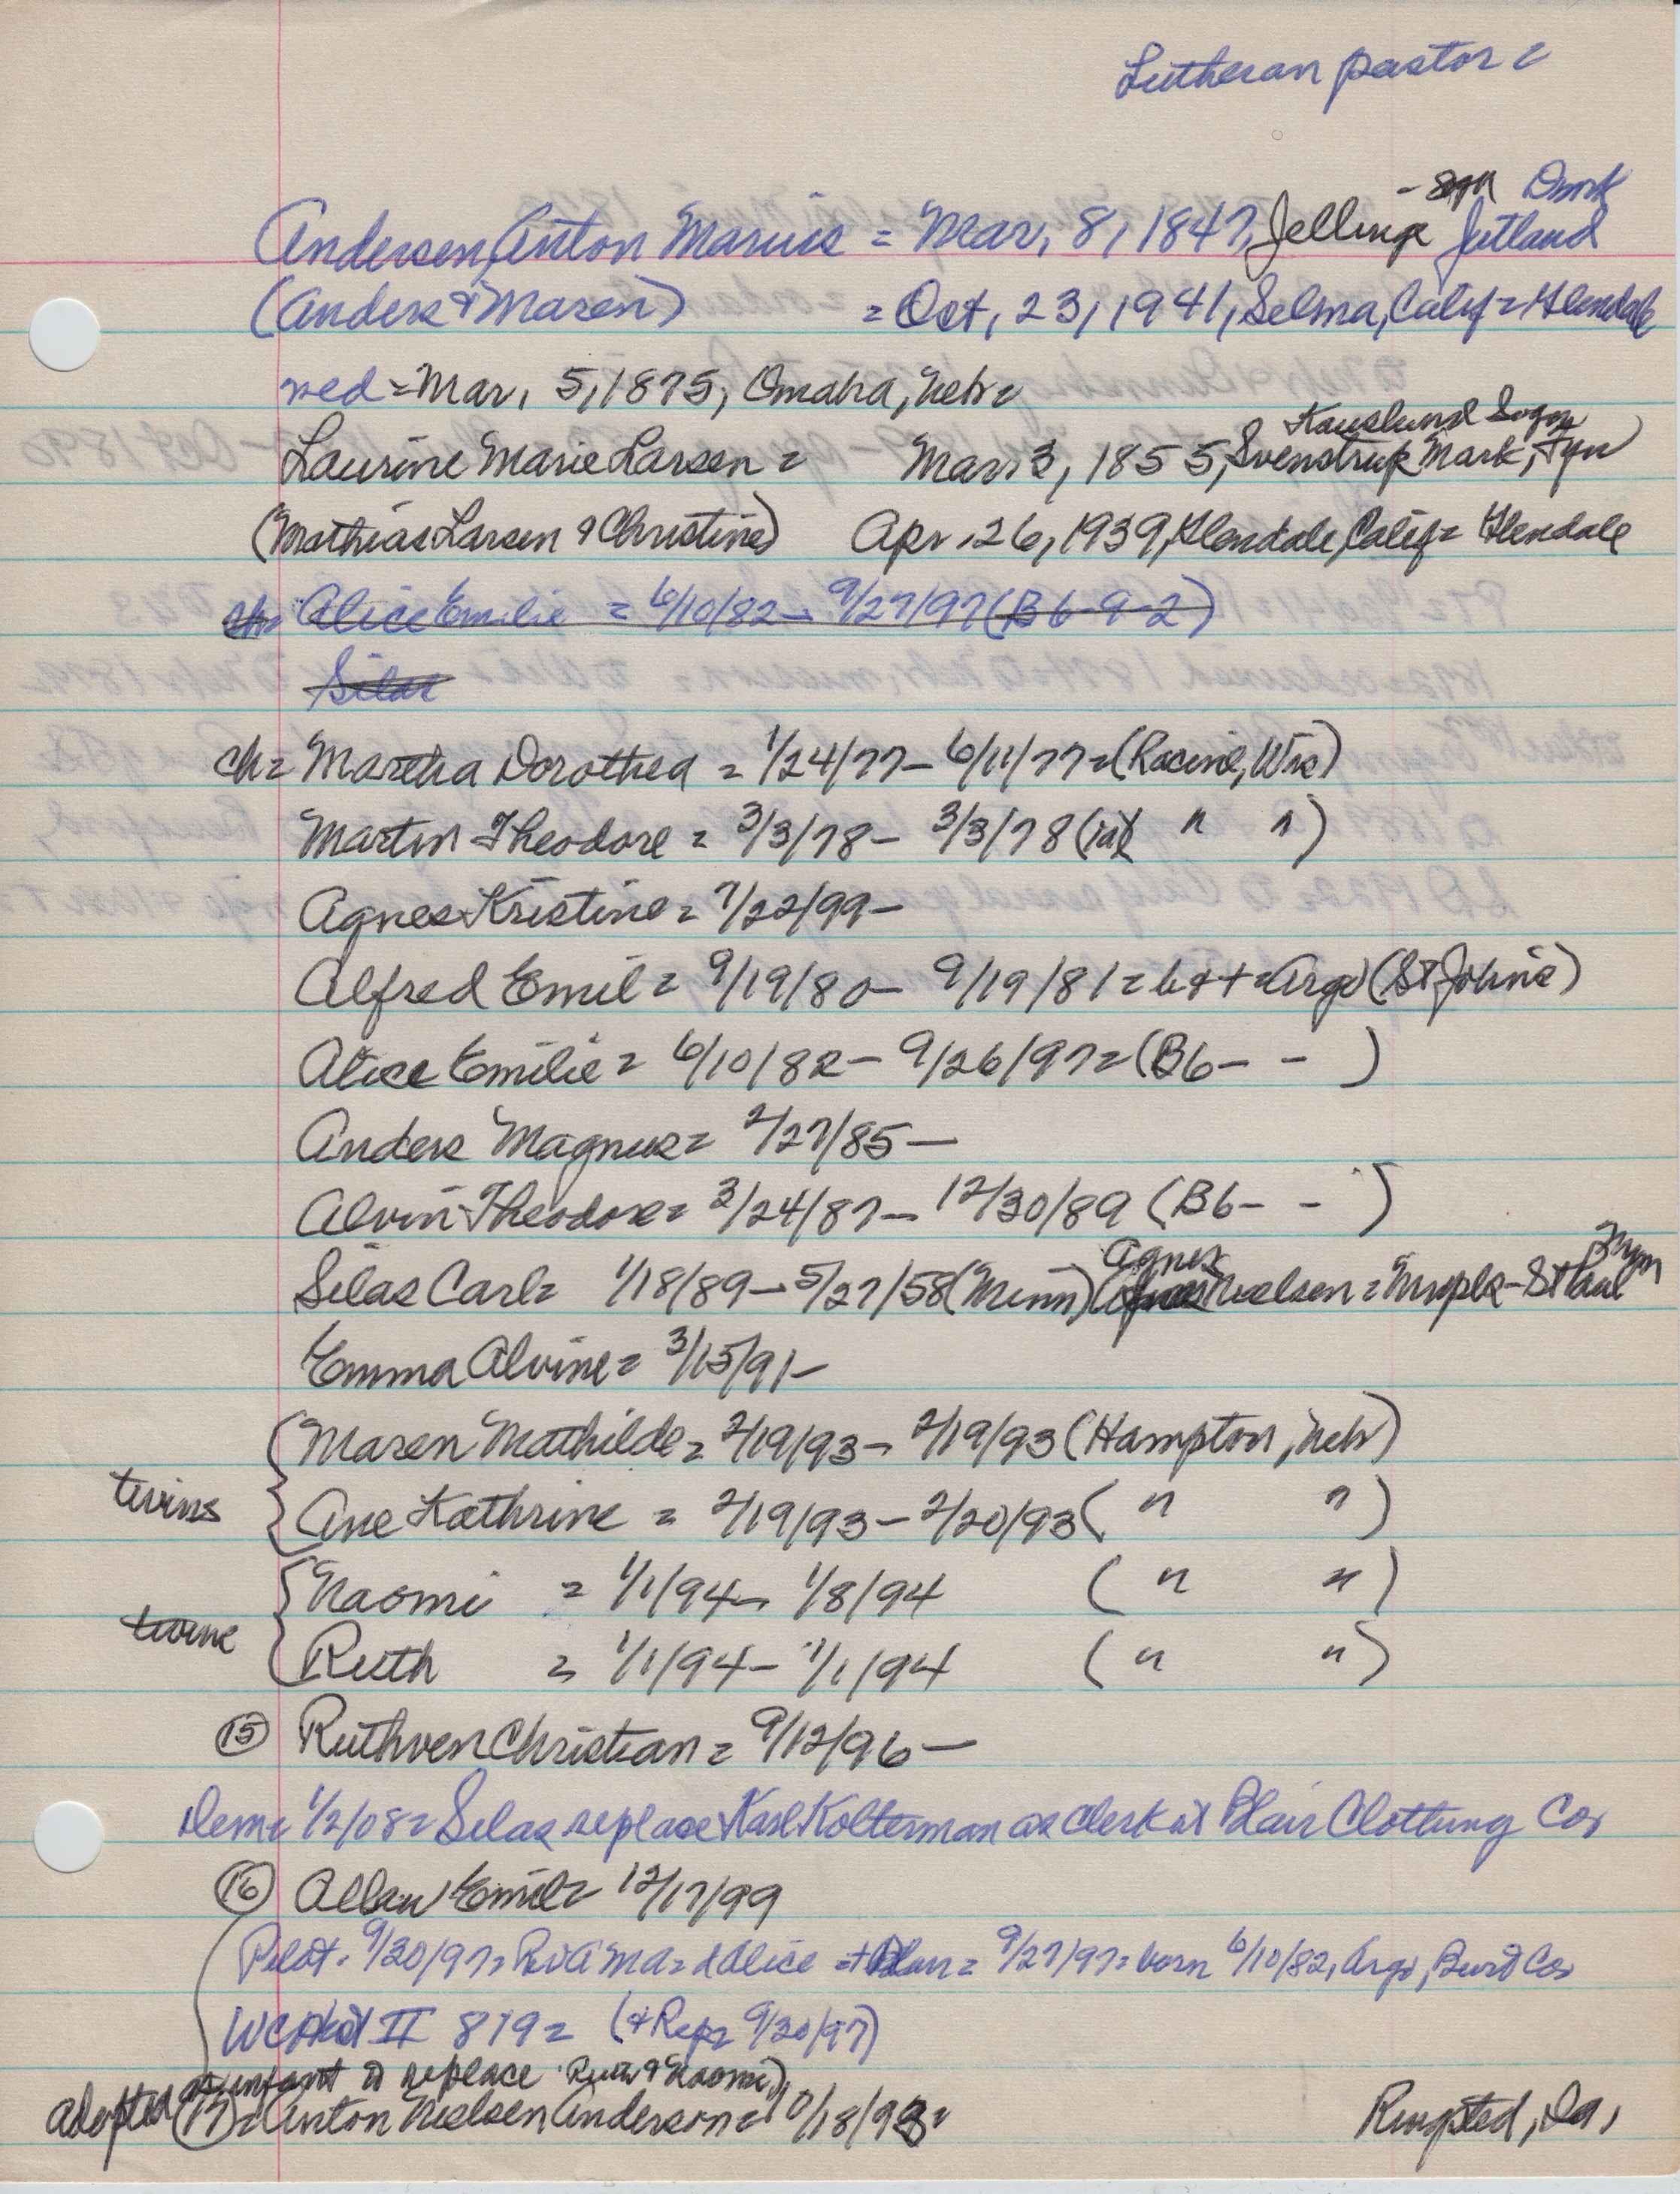 Lutheran pastor =
- sogn Dmk
Andersen, Anton Marius = Mar, 8, 1847, Jelling Jutland
(Anders & Maren) = Oct, 23, 1941, Selma, Calif = Glendale
wed = Mar, 5, 1875, Omaha, Nebr =
Kauslund Sogn
Laurine Marie Larsen = Mar. 3, 1855, Svenstrup Mark, Fyn
(Mathias Larsen & Christine) Apr. 26, 1939, Glendale, Calif = Glendale
ch= Alice Emilie = 6/10/82 - 9/27/97 (B6-9-2)
Silas
ch= Martha Dorothea = 1/24/77 - 6/11/77 = (Racine, Wis)
Martin Theodore = 3/3/78 - 3/3/78 ( " " )
Agnes Kristine = 7/22/99 -
Alfred Emil = 9/19/80 - 9/19/81 = b & + = Argo (St Johns)
Alice Emilie = 6/10/82 - 9/26/97 = (B6- - )
Anders Magnus = 2/27/85 -
Alvin Theodore = 3/24/87 - 12/30/89 (B6- - )
Agnes
Silas Carl = 1/18/89 - 5/27/58 (Minn) Nielsen = Mnpls - St Paul
Emma Alvine = 3/15/91 -
{ Maren Mathilde = 2/19/93 - 2/19/93 (Hampton, Nebr)
twins { Ane Kathrine = 2/19/93 - 2/20/93 ( " " )
{ Naomi = 1/1/94 - 1/8/94 ( " " )
twins { Ruth = 1/1/94 - 1/1/94 ( " " )
(15) Ruthven Christian = 9/12/96 -
Dem = 1/2/08 = Silas replace Karl Kolterman as clerk at Blair Clothing Co,
(16) Allan Emil = 12/17/99
Pilot. 9/20/97 = Rev A Ma = d Alice = + Blair = 9/27/97 = born 6/10/82, Argo, Burt Co,
WCHist II 819 = (+ Rep = 9/20/97)
as infant to replace Ruth & Naomi)
adopted (17) = Anton Nielsen Anderson = 10/18/93 = Ringsted, Ia,